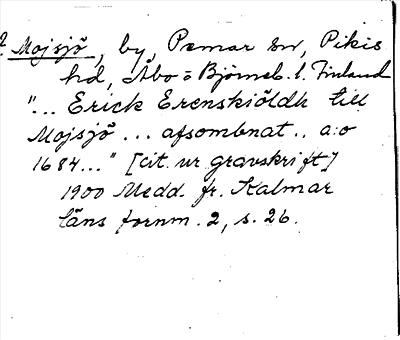 ? Mojsjö, by, Pemar sn, Pikis
hd, Åbo o Björneb. l. Finland
"... Erick Erenskiöldh till
Mojsjö ... afsombnat .. a:o
1684..." [cit. ur gravskrift]
1900 Medd. fr. Kalmar
läns fornm. 2, s. 26.